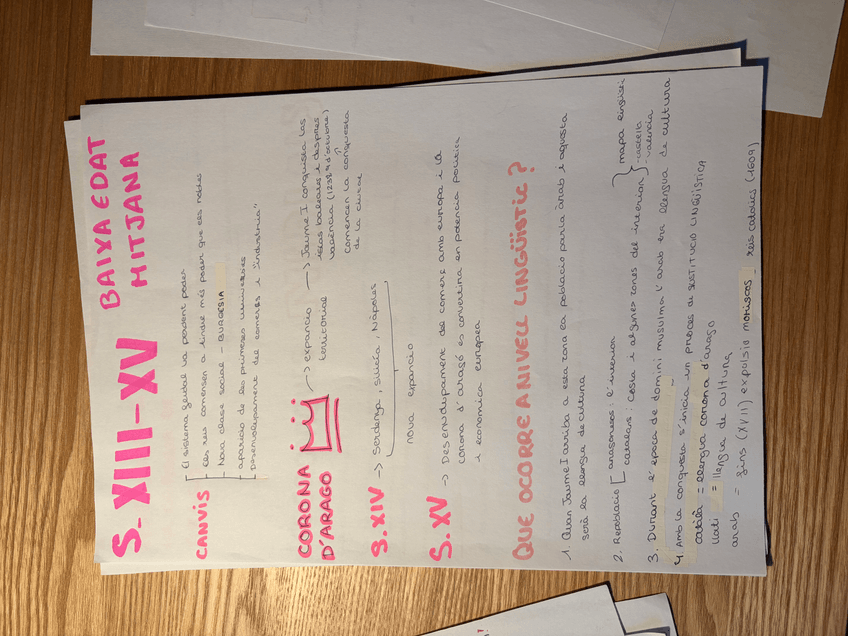 S. XIII-XV BAIXA EDAT
MITJANA
CANVIS
El sistema feudal va perdent poder
Els reis comensen a tindre més poder que els nobles
Nova clase social - BURGESIA
aparicio de les primeres universitats
Desenvolupament del comerç i "industria"
CORONA
D'ARAGO
expancio
territorial
→ Jaume I conquista las
islas balears i despres
valència (1238, 9 d'octubre)
comencen la conquesta
de la ciutat
S. XIV → Serdenya, Silicia, Nàpoles
nova expancio
S. XV → Desenvolupament del comerç amb europa i la
corona d'aragó es convertira en potencia politica
i economica europea
QUE OCORRE A NIVELL LINGÜISTIC?
1. Quan Jaume I arriba a esta zona la poblacio parla àrab i aquesta
serà la llengua de cultura
2. Repoblacio [ aragonesos: l'interior
catalans: costa i algunes zones del interior } mapa lingüistic
- castellà
- valencia
3. Durant l'època de domini musulma l'arab era llengua de cultura
4. Amb la conquesta s'inicia un proces de SUSTITUCIO LINGÜISTICA
català = llengua corona d'arago
llati = llengua de cultura
arab = fins (XVII) expulsio moriscos reis catolics (1609)